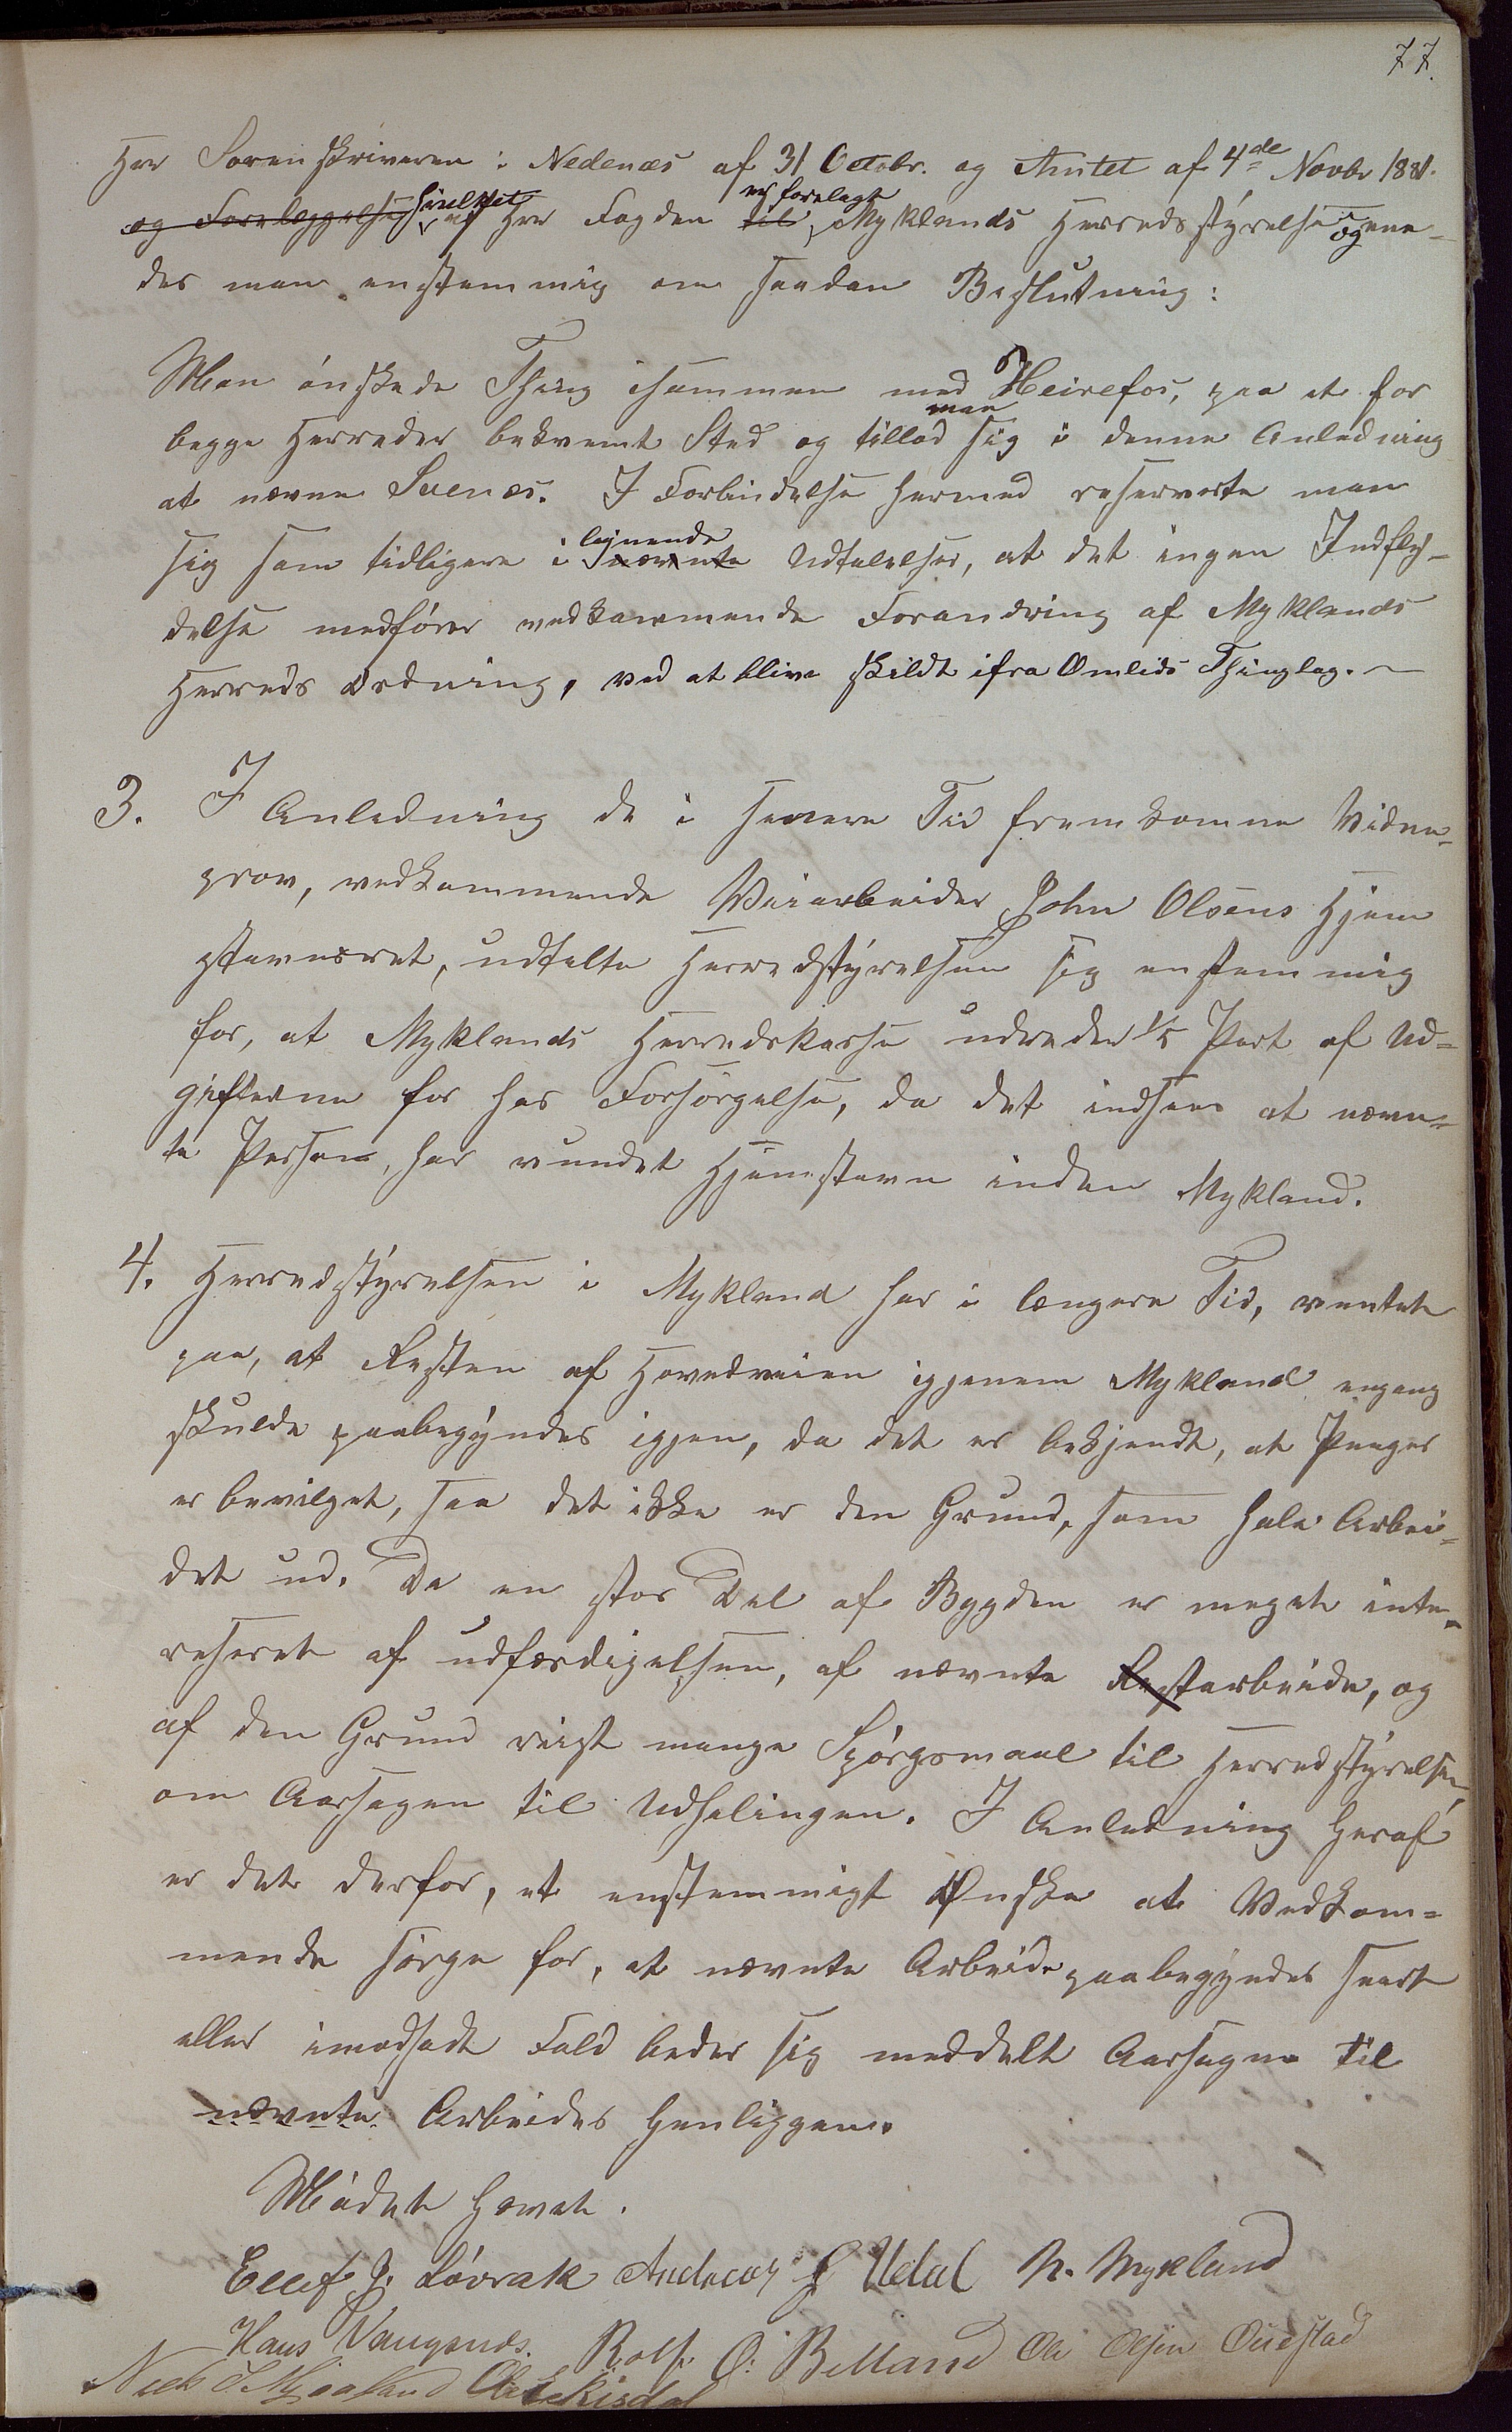 77.
Hr Sorenskriveren i Nedenæs af 31 Octobr. og Amtet af 4de Novbr 1881.
og Forelæggelse hvilket af Hr Fogden til er forelagt Myklands Herredsstyrelse og ene-
des man enstemmig om saadan Beslutning:
Man ønskede Thing isammen med Heirefos, paa et for
begge Herreder bekvemt Sted og tillod man sig i denne Anledning
at nævne Svenæs. I Forbindelse hermed reserverte man
sig som tidligere i nævnte lignende Udtalelser, at det ingen Indfly-
delse medfører vedkommende Forandring af Myklands
Herreds Ordning, ved at blive skildt ifra Omlids Thinglag. —
3. I Anledning de i senere Tid fremkomne Vidne-
prov, vedkommende Veiarbeider John Olsens Hjem
stavnsret, udtalte Herredstyrelsen sig enstemmig
for, at Myklands Herredskasse udreder 1/5 Part af Ud=
gifterne for has Forsørgelse, da det indsees at nævn=
te Person, har vundet Hjemstavn inden Mykland.
4. Herredstyrelsen i Mykland har i længere Tid, ventet
paa, at Resten af Hovedveien igjenem Mykland engang
skulde paabegyndes igjen, da det er bekjendt, at Penger
er bevilget, saa det ikke er den Grund, som hale Arbei=
det ud. Da en stor Del af Bygden er meget inte-
reseret af udfærdigelsen, af nævnte Restarbeide, og
af den Grund reist mange Spørgsmaal til Herredstyrelsen,
om Aarsagen til Udhalingen. I Anledning heraf
er det derfor, et enstemmigt Ønske at Vedkom=
mende sørge for, at nævnte Arbeide paabegyndes snart
eller imodsadt Fald beder sig meddelt Aarsagen til
nævnte Arbeides Henliggen.
Mødet hævet.
Ellef J. Løvrak Andreas J Uldal N. Mykland
Hans Vangsnes. Rolf. O. Belland Ole Olsen Øvestad
Niels T Mjaaland Ole Eskisdal